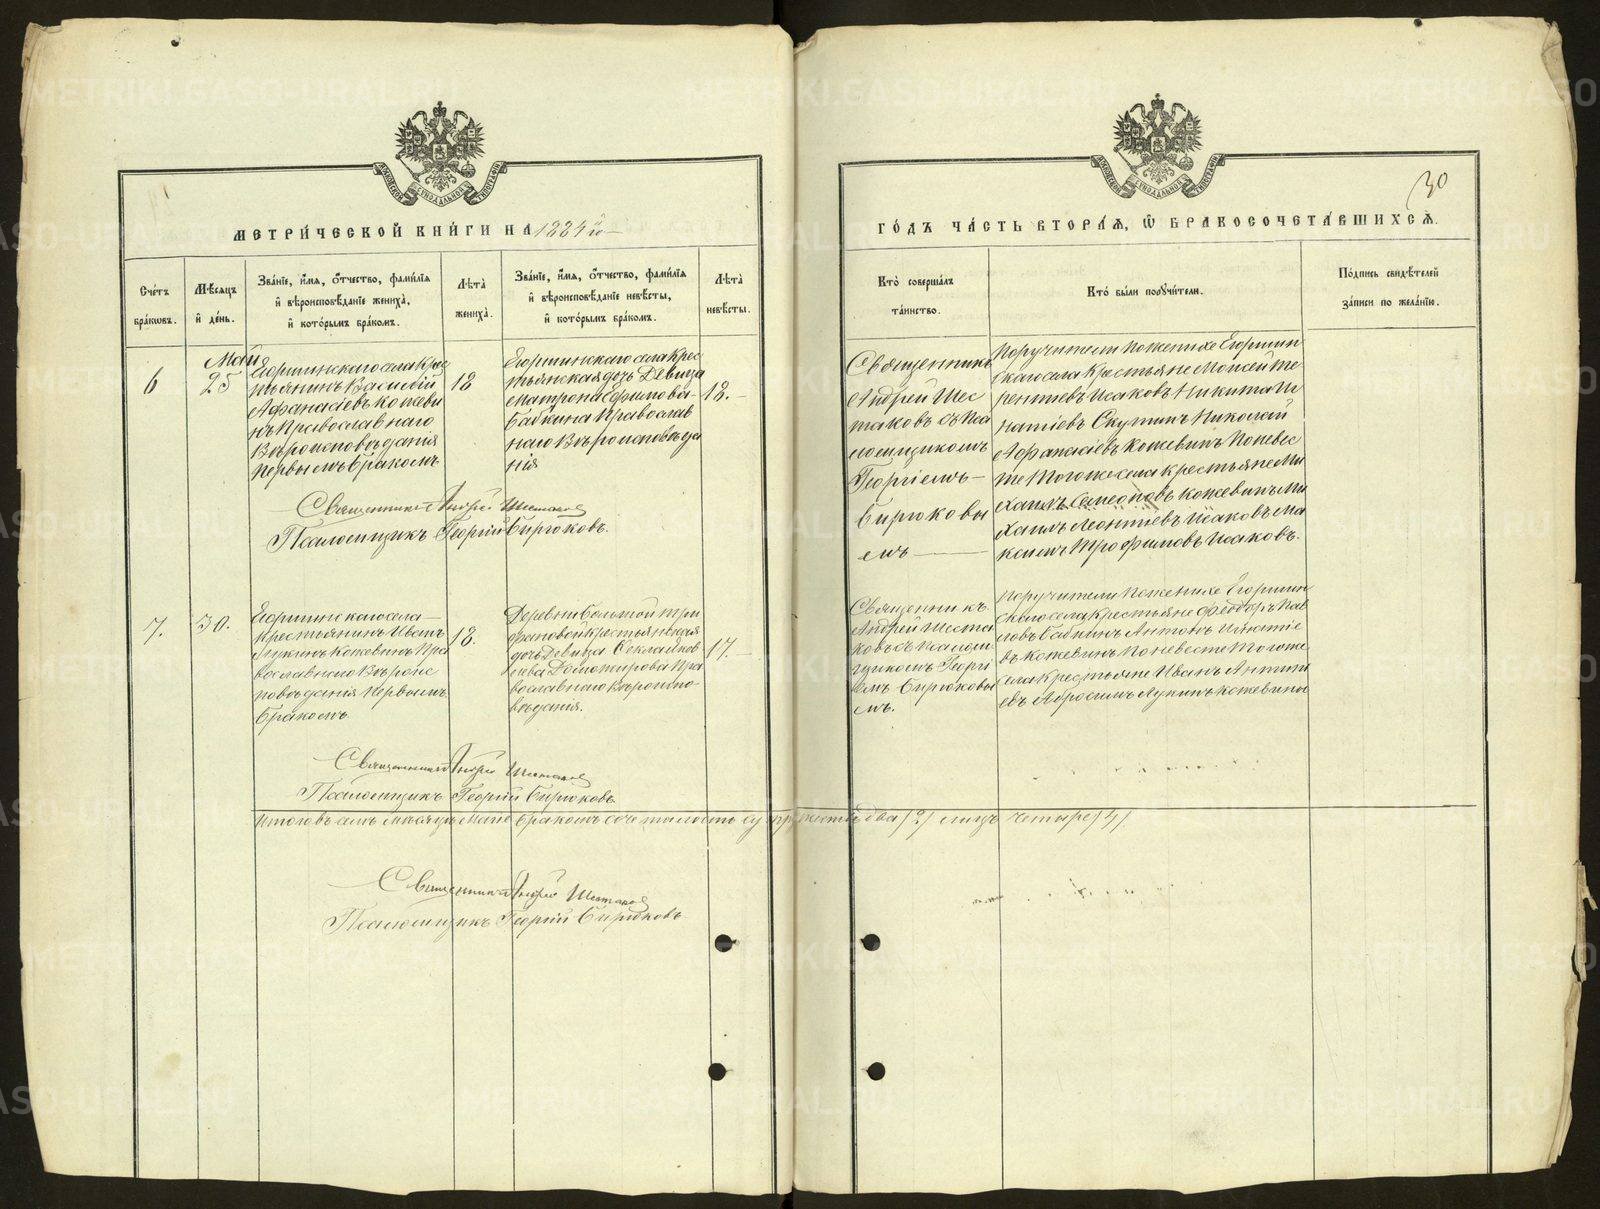 МЕТРИ́ЧЕСКОЙ КНИ́ГИ НА 1884 й
ГО́ДЪ ЧА́СТЬ ВТОРА́Я, Ѽ БРАКОСОЧЕТА́ВШИХСЯ.
30
Сче́тъ бра́ковъ.
Мѣ́сяцъ и҆ де́нь.
Зва́нїе, и҆́мя, ѻ҆́тчество, фами́лїя и҆ вѣроисповѣ́данїе жениха̀, и҆ кото́рымъ бра́комъ.
Лѣ́та жениха̀.
Зва́нїе, и҆́мя, ѻ҆́тчество, фами́лїя и҆ вѣроисповѣ́данїе невѣ́сты, и҆ кото́рымъ бра́комъ.
Лѣ́та невѣ́сты.
Кто̀ соверша́лъ та́инство.
Кто̀ бы́ли поручи́тели.
По́дпись свидѣ́телей за́писи по жела́нїю.
6
Май
25
Егоршинскаго села Крес
тьянинъ Василій
Афанасіевъ Кожеви
нъ Православнаго
Вѣроисповѣданія
первымъ бракомъ
18
Егоршинскаго села Крес
тьянская дочь Девица
Матрона Ефимова
Бабкина Православ
наго Вѣроисповѣда
нія
18.
Священникъ
Андрей Шес
таковъ съ Пса
ломщикомъ
Георгіемъ
Бирюковы
мъ
Поручители по женихе Егоршин
скаго села Крестьяне Моисей Те
рентіевъ Исаковъ Никита И
гнатіевъ Скутинъ Николай
Афанасіевъ Кожевинъ по невес
те того же села крестьяне Ми
хаилъ Семеновъ Кожевинъ Ми
хаилъ Леонтіевъ Исаковъ Ма
ксимъ Трофимовъ Исаковъ.
Священникъ Андрей Шестаковъ
Псаломщикъ Георгій Бирюковъ.
7.
30.
Егоршинскаго села
Крестьянинъ Иванъ
Лукинъ Кожевинъ Пра
вославнаго Вѣроис
повѣданія первымъ
бракомъ
18.
Деревни Большой Три
фановой крестьянская
дочь Девица
Домотирова Пра
вославнаго Вѣроиспо
вѣданія.
17.
Священникъ
Андрей Шеста
ковъ съ Псалом
щикомъ Георгі
емъ Бирюковы
мъ.
Поручители по женихе Егоршин
скаго села Крестьяне Феодоръ Пав
ловъ Бабкинъ Антонъ Игнатіе
въ Кожевинъ по невесте того же
села крестьяне Иванъ Антипи
евъ Абросимъ Лукинъ Кожевины
Священникъ Андрей Шестаковъ
Псаломщикъ Георгій Бирюковъ
Итого въ семъ месяце Маѣ бракомъ сочеталось супружествъ два /2/ лицъ четыре /4/.
Священникъ Андрей Шестаковъ
Псаломщикъ Георгій Бирюковъ
METRIKI.GASO-URAL.RU